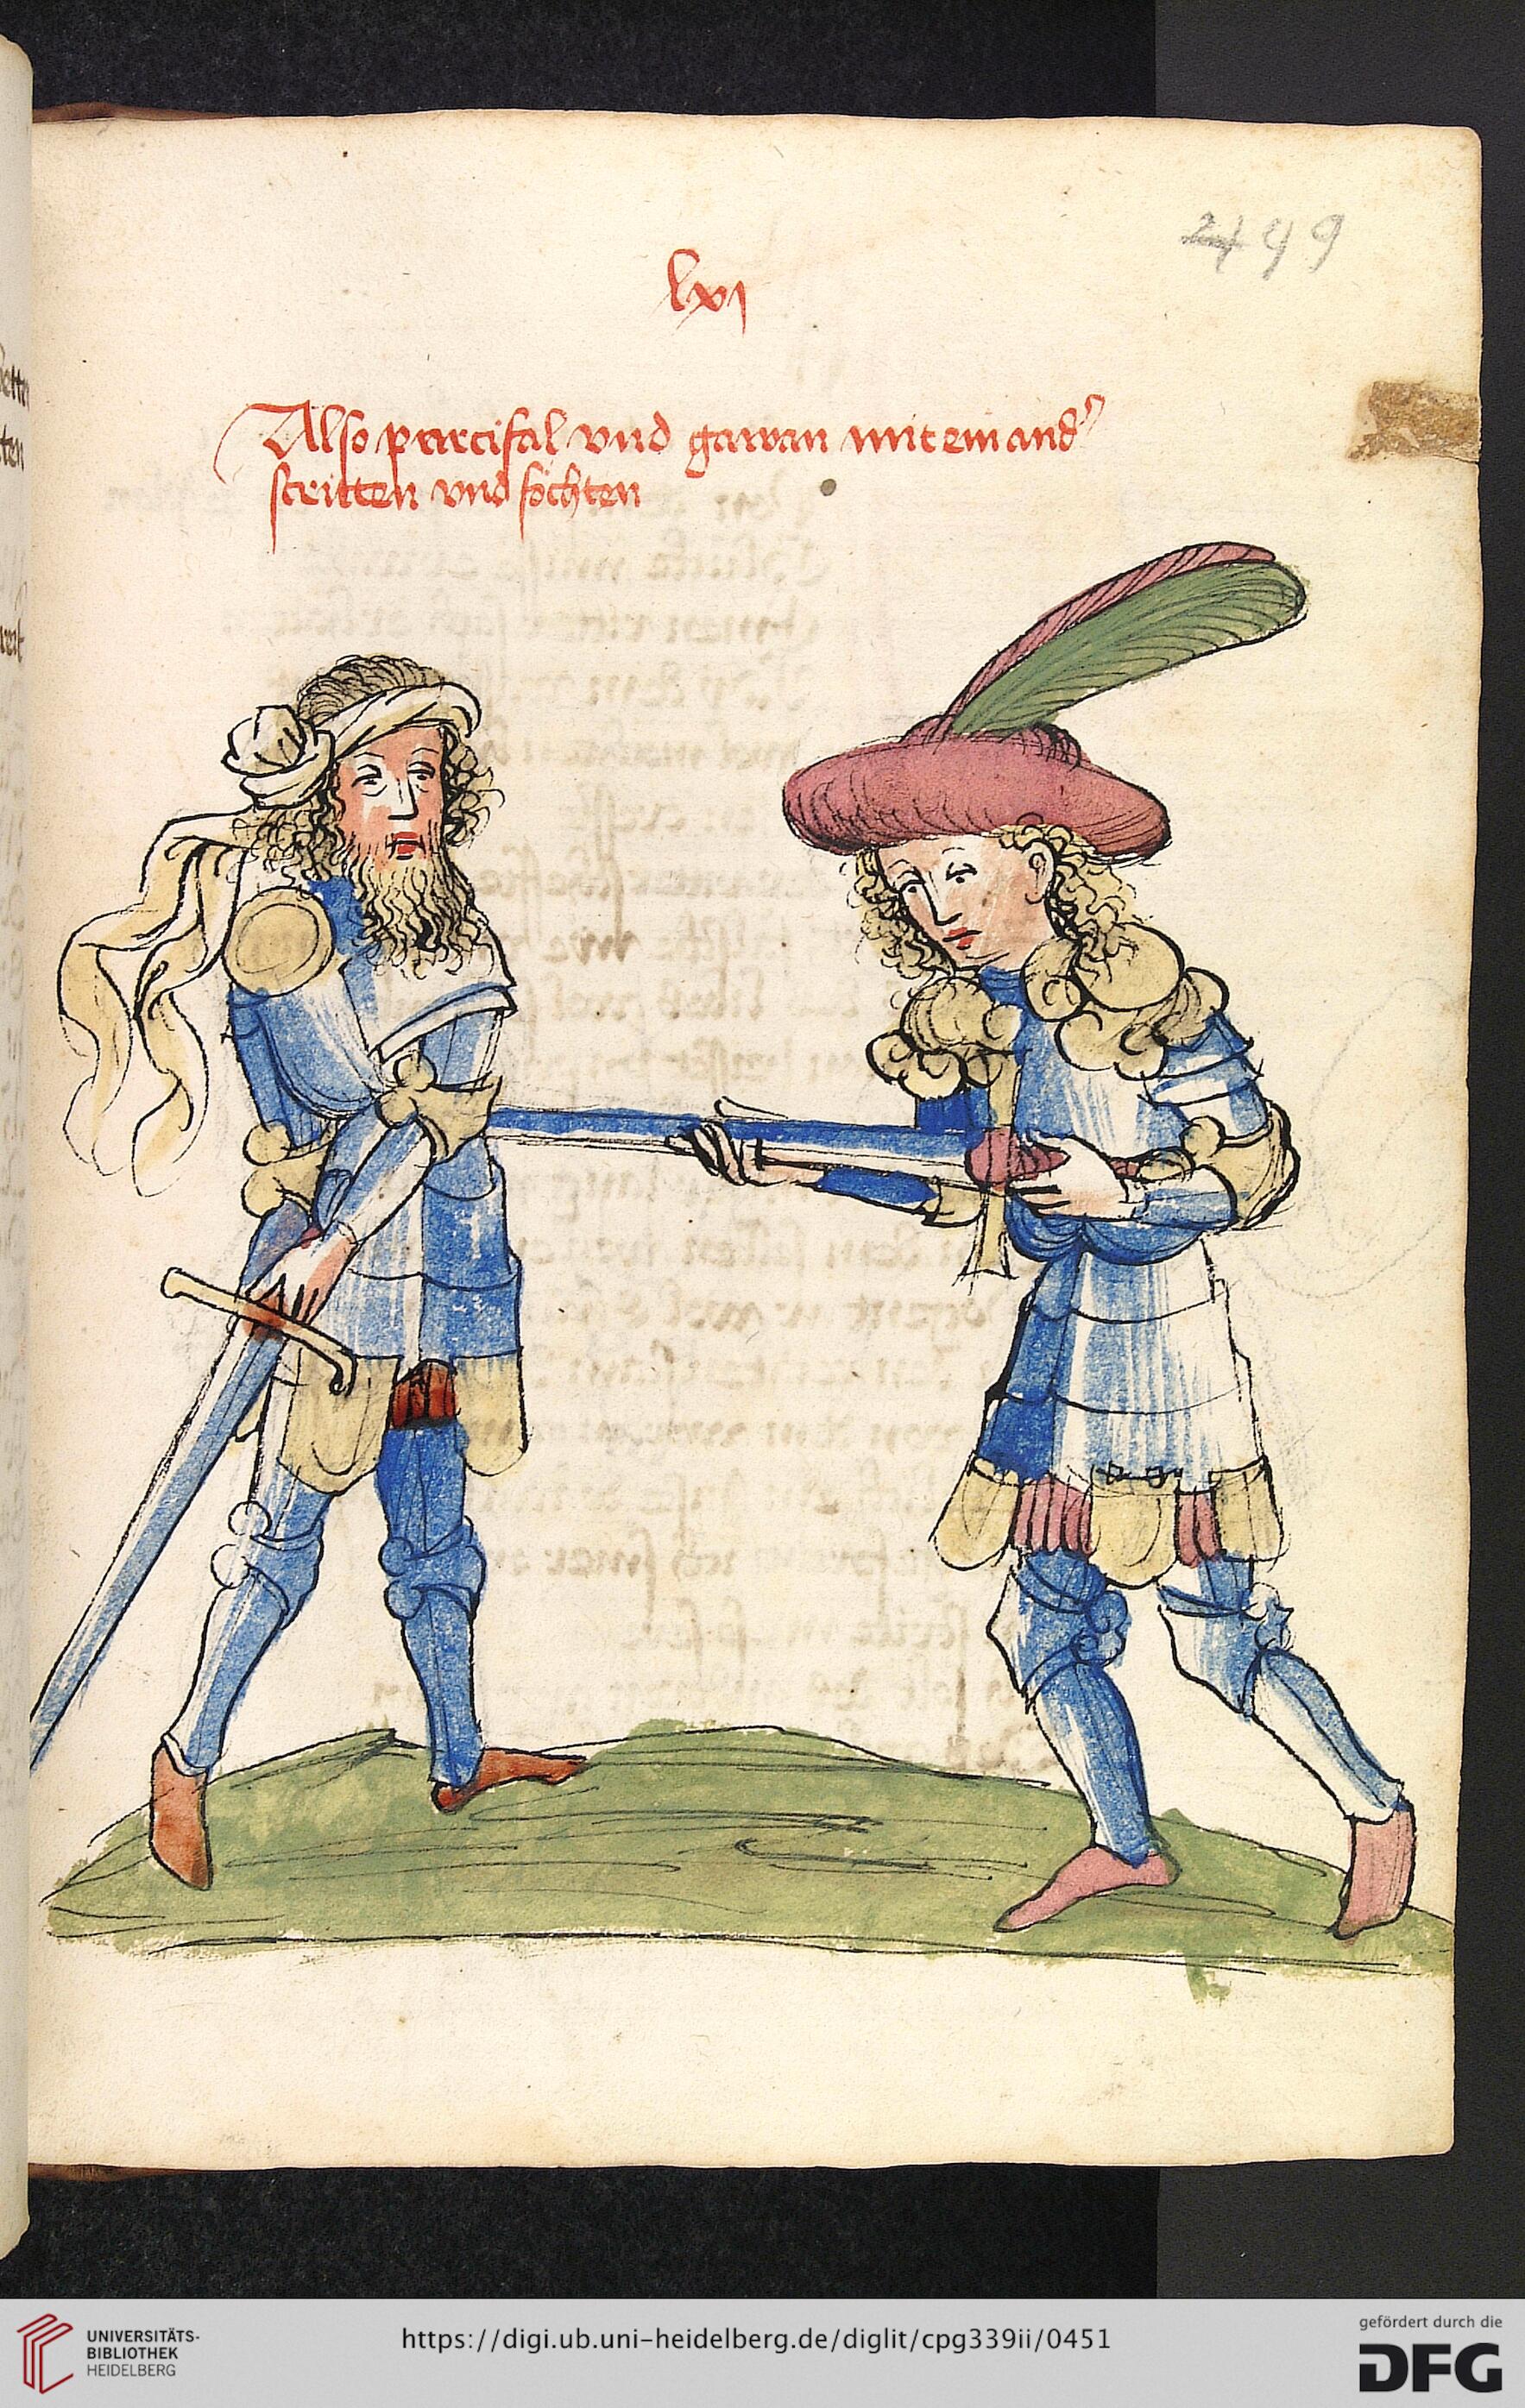 499
lxi
Also parcifal vnd gawan mit einand᷑
stritten vnd föchten
UNIVERSITÄTS-
BIBLIOTHEK
HEIDELBERG
https://digi.ub.uni-heidelberg.de/diglit/cpg339ii/0451
gefördert durch die
DFG